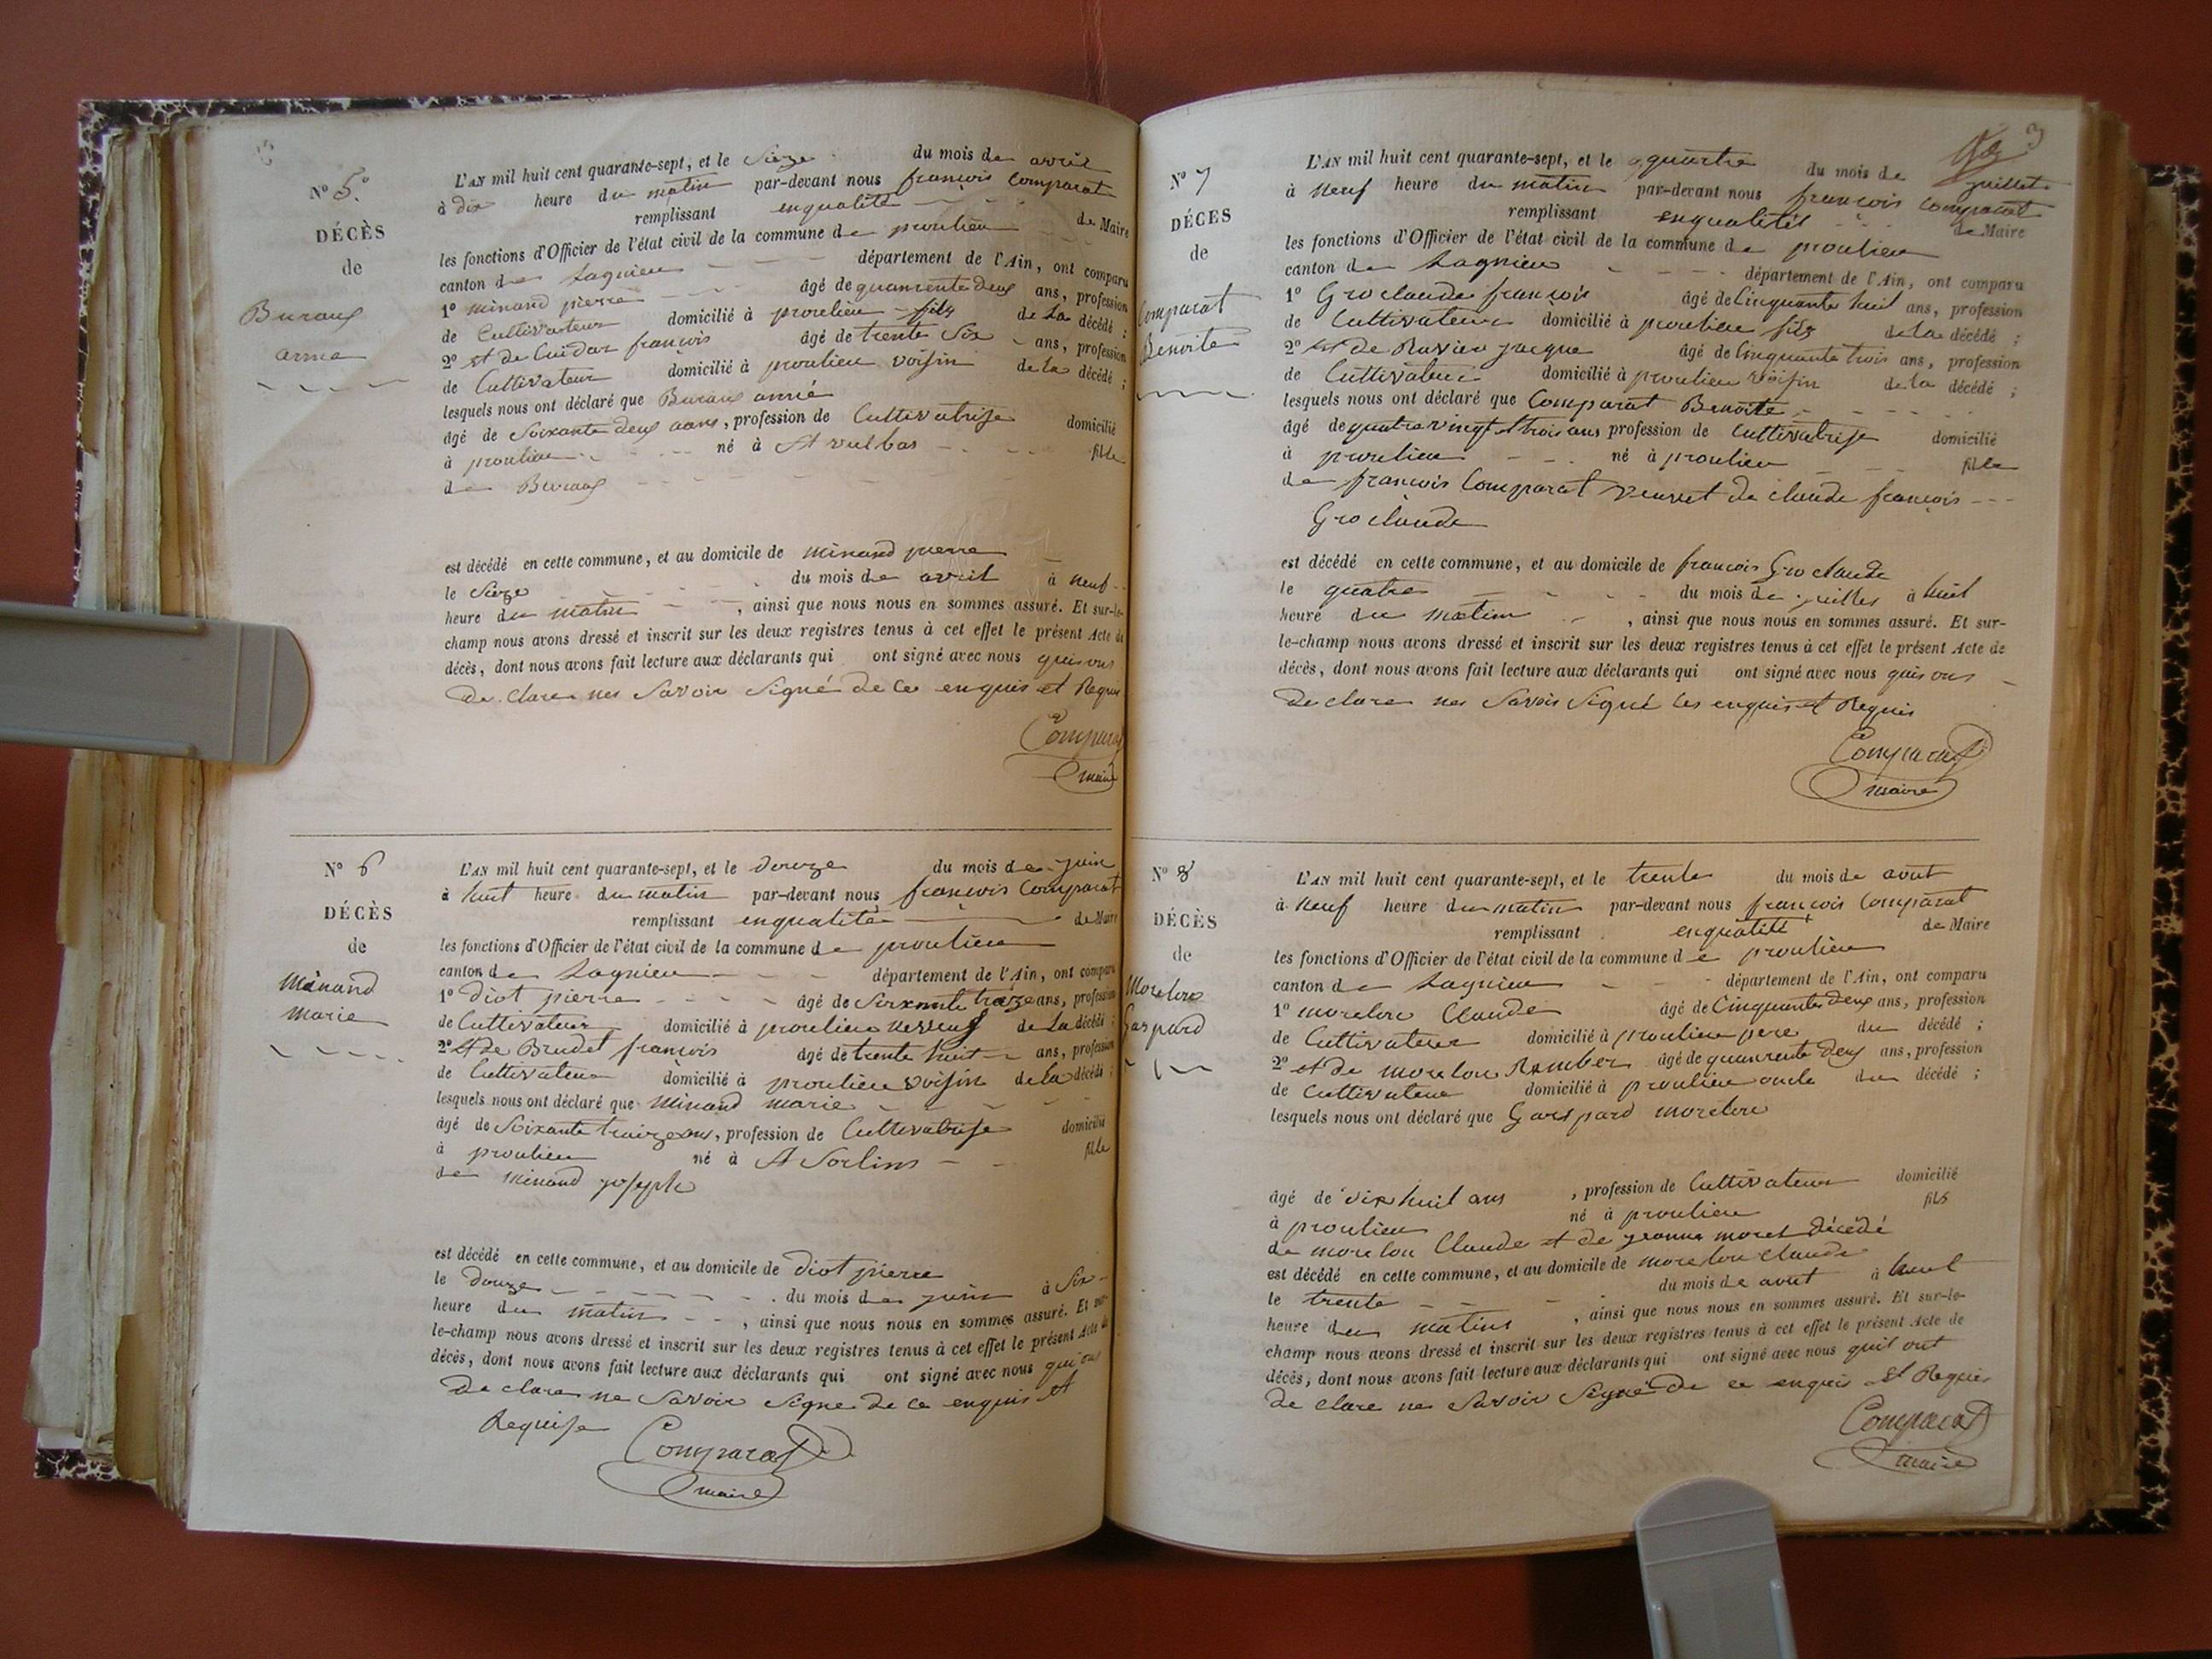 N° 5.
DÉCÈS
de
Buraux
anna
L'AN mil huit cent quarante-sept, et le Sieze du mois de avril
à dix heure du matin par-devant nous françois Comparat
remplissant enqualité de Maire
les fonctions d'Officier de l'état civil de la commune de proulieu
canton de Lagnieu département de l'Ain, ont comparu
1° minand pierre âgé de quarente deux ans, profession
de Cultivateur domicilié à proulieu fils de La décédé ;
2° et de Cuidar françois âgé de trente Six ans, profession
de Cultivateur domicilié à proulieu voisin de La décédé ;
lesquels nous ont déclaré que Buraux anné
âgé de Soixante deux aans, profession de Cultivatrise domicilié
à proulieu né à St vulbas fille
de Buraux
est décédé en cette commune, et au domicile de minand pierre
le Sieze du mois de avril à neuf
heure du matin , ainsi que nous nous en sommes assuré. Et sur-le-
champ nous avons dressé et inscrit sur les deux registres tenus à cet effet le présent Acte de
décès, dont nous avons fait lecture aux déclarants qui ont signé avec nous quis ons
de clare nes Savoir Signé de Ce enquis et Requis
Comparat
maire
N° 6
DÉCÈS
de
Minand
Marie
L'AN mil huit cent quarante-sept, et le douze du mois de juin
à huit heure du matin par-devant nous françois Comparat
remplissant enqualité de Maire
les fonctions d'Officier de l'état civil de la commune de proulieu
canton de Lagnieu département de l'Ain, ont comparu
1° Diot pierre âgé de Soixante treize ans, profession
de Cultivateur domicilié à proulieu nesveux de La décédé ;
2° et de Brudet françois âgé de trente huit ans, profession
de Cultivateur domicilié à proulieu voisin de La décédé ;
lesquels nous ont déclaré que Minand marie
âgé de Soixante traize ans, profession de Cultivatrise domicilié
à proulieu né à St Sorlins fille
de minand joseph
est décédé en cette commune, et au domicile de Diot pierre
le Douze du mois de juin à Six
heure du matin , ainsi que nous nous en sommes assuré. Et sur-
le-champ nous avons dressé et inscrit sur les deux registres tenus à cet effet le présent Acte de
décès, dont nous avons fait lecture aux déclarants qui ont signé avec nous qui ons
De clare ne Savoir Signe de Ce enquis et
Requise
Comparat
maire
3
N° 7
DÉCÈS
de
Comparat
Benoite
L'AN mil huit cent quarante-sept, et le quartre du mois de juillet
à neuf heure du matin par-devant nous françois Comparat
remplissant enqualités de Maire
les fonctions d'Officier de l'état civil de la commune de proulieu
canton de Lagnieu département de l'Ain, ont comparu
1° Groclaude françois âgé de Cinquante huit ans, profession
de Cultivateur domicilié à proulieu fils de La décédé ;
2° et de Ruvieu jacque âgé de Cinquante trois ans, profession
de Cultivateur domicilié à proulieu voisin de la décédé ;
lesquels nous ont déclaré que Comparat Benoite
âgé de quatre vingt et trois ans profession de Cultivatrise domicilié
à proulieu né à proulieu fille
de françois Comparat veuvet de claude françois
Groclaude
est décédé en cette commune, et au domicile de françois Groclaude
le quatre du mois de juillet à huit
heure du matin , ainsi que nous nous en sommes assuré. Et sur-
le-champ nous avons dressé et inscrit sur les deux registres tenus à cet effet le présent Acte de
décès, dont nous avons fait lecture aux déclarants qui ont signé avec nous quis ons
De clare nes Savoir Signé Ces enquis et Requis
Comparat
maire
N° 8
DÉCÈS
de
Morelon
Gaspard
L'AN mil huit cent quarante-sept, et le trente du mois de aout
à neuf heure du matin par-devant nous françois Comparat
remplissant enqualité de Maire
les fonctions d'Officier de l'état civil de la commune de proulieu
canton de Lagnieu département de l'Ain, ont comparu
1° morelon Claude âgé de Cinquante deux ans, profession
de Cultivateur domicilié à proulieu pere du décédé ;
2° et de morelon Rember âgé de quanrente deux ans, profession
de Cultivateur domicilié à proulieu oncle du décédé ;
lesquels nous ont déclaré que Gaspard morelon
âgé de dix huit ans , profession de Cultivateur domicilié
à proulieu né à proulieu fils
de morelon Claude et de jeanna moret décédé
est décédé en cette commune, et au domicile de morelon claude
le trente du mois de aout à huit
heure du matins , ainsi que nous nous en sommes assuré. Et sur-le-
champ nous avons dressé et inscrit sur les deux registres tenus à cet effet le présent Acte de
décès, dont nous avons fait lecture aux déclarants qui ont signé avec nous quil ont
de clare nes Savoir Signé De ce enquis et Requis
Comparat
maire